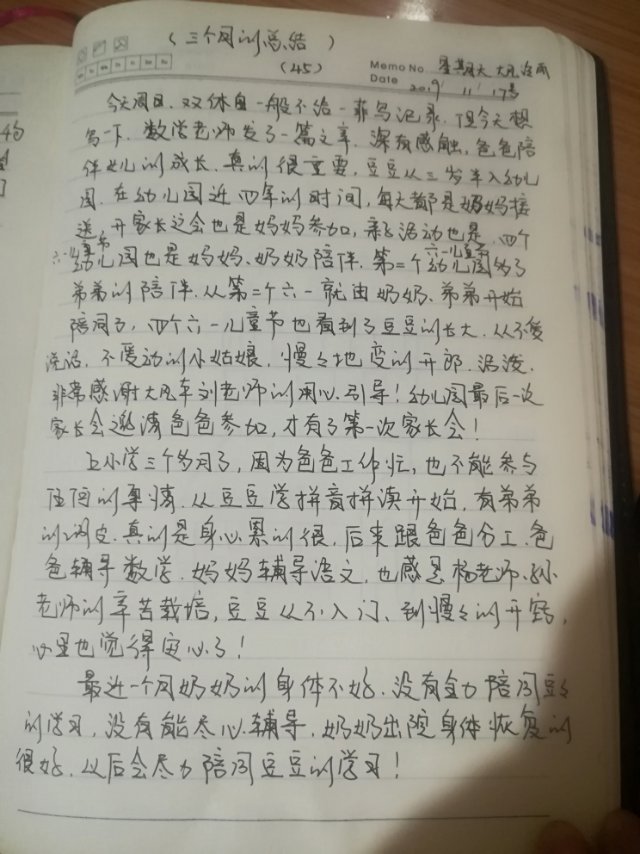 (三个月的总结)
(45)
Memo No. 星期天 大风
Date 2019 11 17号
今天周日,双休日一般不给一菲写记录,但今天想
写一下,数学老师发了一篇文章,深有感触,爸爸陪
伴女儿的成长,真的很重要,豆豆从三岁半入幼儿
园,在幼儿园近四年的时间,每天都是妈妈接
送,开家长会也是妈妈参加,亲子活动也是,四个
六一儿童节 六一儿童节
幼儿园也是妈妈、奶奶陪伴,第二个幼儿园多了
弟弟的陪伴,从第二个六一就由奶奶、弟弟开始
陪同了,四个六一儿童节也看到了豆豆的长大,从不爱
说话,不爱动的小姑娘,慢々地变的开朗、活泼,
非常感谢大凡车刘老师的用心引导!幼儿园最后一次
家长会邀请爸爸参加,才有了第一次家长会!
上小学三个多月了,因为爸爸工作忙,也不能参与
任何的事情,从豆豆学拼音拼读开始,有弟弟
的调皮,真的是身心累的很,后来跟爸爸分工,爸
爸辅导数学,妈妈辅导语文,也感恩杨老师、孙
老师的辛苦栽培,豆豆从不入门、到慢々的开窍,
心里也觉得定心了!
最近一个月奶奶的身体不好,没有全力陪同豆々
的学习,没有能尽心辅导,奶奶出院身体恢复的
很好,以后会尽力陪同豆豆的学习!